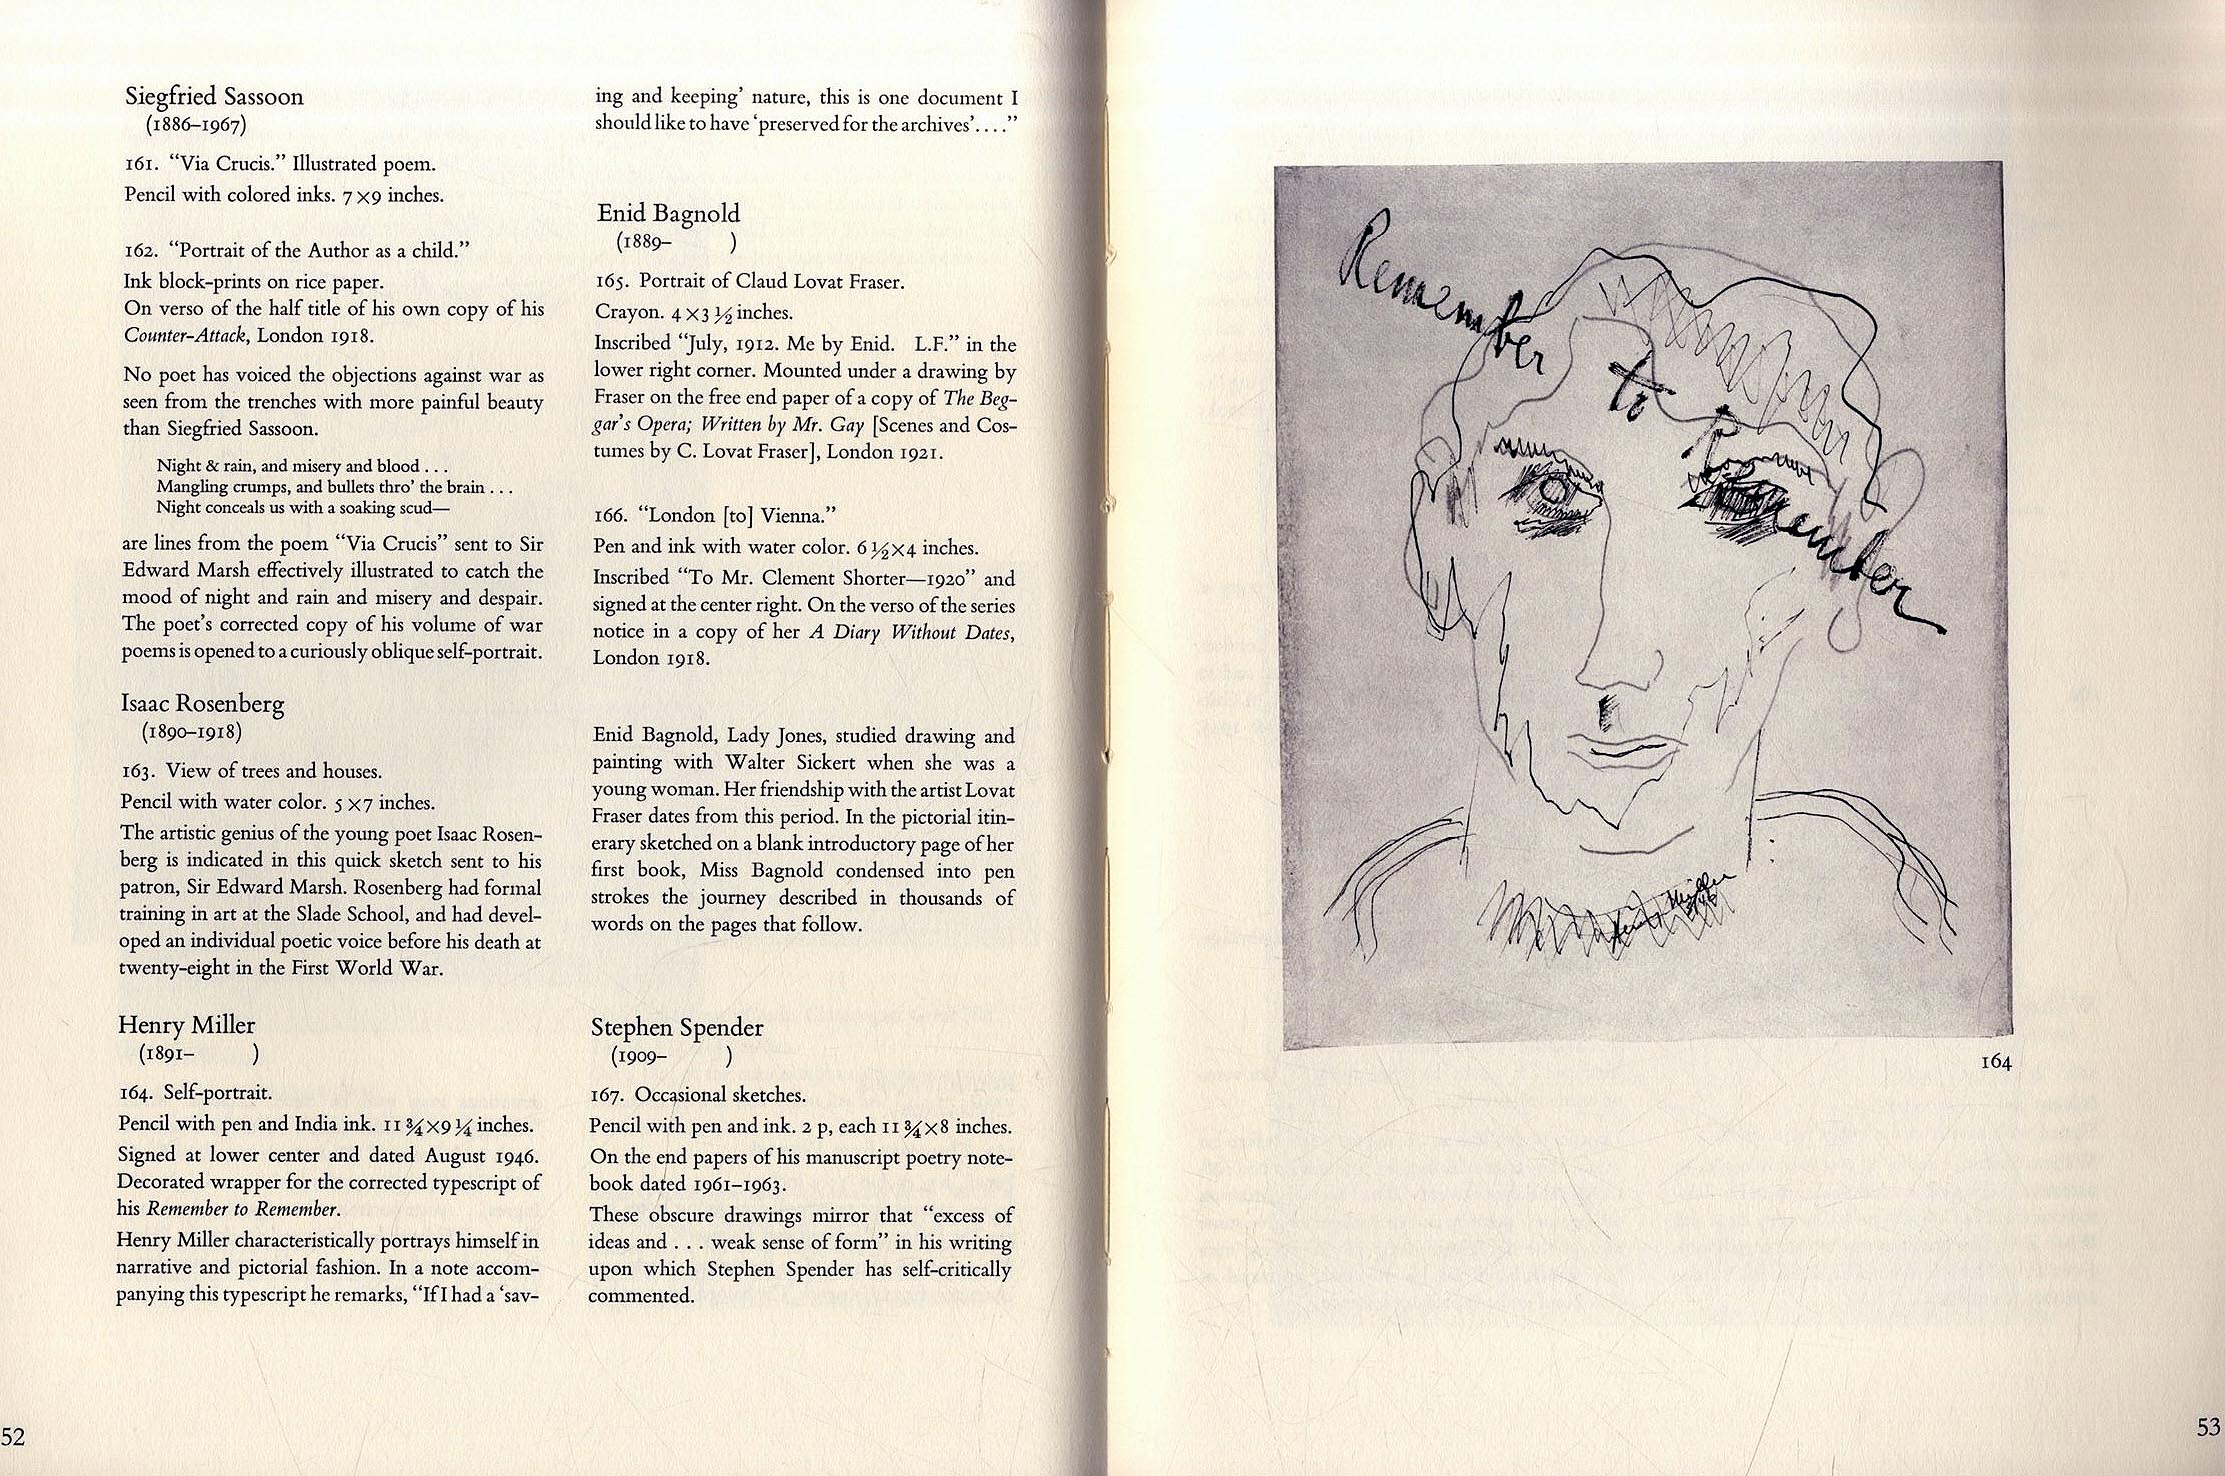 Siegfried Sassoon
(1886–1967)
161. “Via Crucis.” Illustrated poem.
Pencil with colored inks. 7 × 9 inches.
162. “Portrait of the Author as a child.”
Ink block-prints on rice paper.
On verso of the half title of his own copy of his
Counter-Attack, London 1918.
No poet has voiced the objections against war as
seen from the trenches with more painful beauty
than Siegfried Sassoon.
Night & rain, and misery and blood . . .
Mangling crumps, and bullets thro’ the brain . . .
Night conceals us with a soaking scud—
are lines from the poem “Via Crucis” sent to Sir
Edward Marsh effectively illustrated to catch the
mood of night and rain and misery and despair.
The poet’s corrected copy of his volume of war
poems is opened to a curiously oblique self-portrait.
Isaac Rosenberg
(1890–1918)
163. View of trees and houses.
Pencil with water color. 5 × 7 inches.
The artistic genius of the young poet Isaac Rosen-
berg is indicated in this quick sketch sent to his
patron, Sir Edward Marsh. Rosenberg had formal
training in art at the Slade School, and had devel-
oped an individual poetic voice before his death at
twenty-eight in the First World War.
Henry Miller
(1891– )
164. Self-portrait.
Pencil with pen and India ink. 11 ¾ × 9 ¼ inches.
Signed at lower center and dated August 1946.
Decorated wrapper for the corrected typescript of
his Remember to Remember.
Henry Miller characteristically portrays himself in
narrative and pictorial fashion. In a note accom-
panying this typescript he remarks, “If I had a ‘sav-
ing and keeping’ nature, this is one document I
should like to have ‘preserved for the archives’. . . .”
Enid Bagnold
(1889– )
165. Portrait of Claud Lovat Fraser.
Crayon. 4 × 3 ½ inches.
Inscribed “July, 1912. Me by Enid. L.F.” in the
lower right corner. Mounted under a drawing by
Fraser on the free end paper of a copy of The Beg-
gar’s Opera; Written by Mr. Gay [Scenes and Cos-
tumes by C. Lovat Fraser], London 1921.
166. “London [to] Vienna.”
Pen and ink with water color. 6 ½ × 4 inches.
Inscribed “To Mr. Clement Shorter—1920” and
signed at the center right. On the verso of the series
notice in a copy of her A Diary Without Dates,
London 1918.
Enid Bagnold, Lady Jones, studied drawing and
painting with Walter Sickert when she was a
young woman. Her friendship with the artist Lovat
Fraser dates from this period. In the pictorial itin-
erary sketched on a blank introductory page of her
first book, Miss Bagnold condensed into pen
strokes the journey described in thousands of
words on the pages that follow.
Stephen Spender
(1909– )
167. Occasional sketches.
Pencil with pen and ink. 2 p, each 11 ¾ × 8 inches.
On the end papers of his manuscript poetry note-
book dated 1961–1963.
These obscure drawings mirror that “excess of
ideas and . . . weak sense of form” in his writing
upon which Stephen Spender has self-critically
commented.
52
Remember to Remember
Miller
164
53